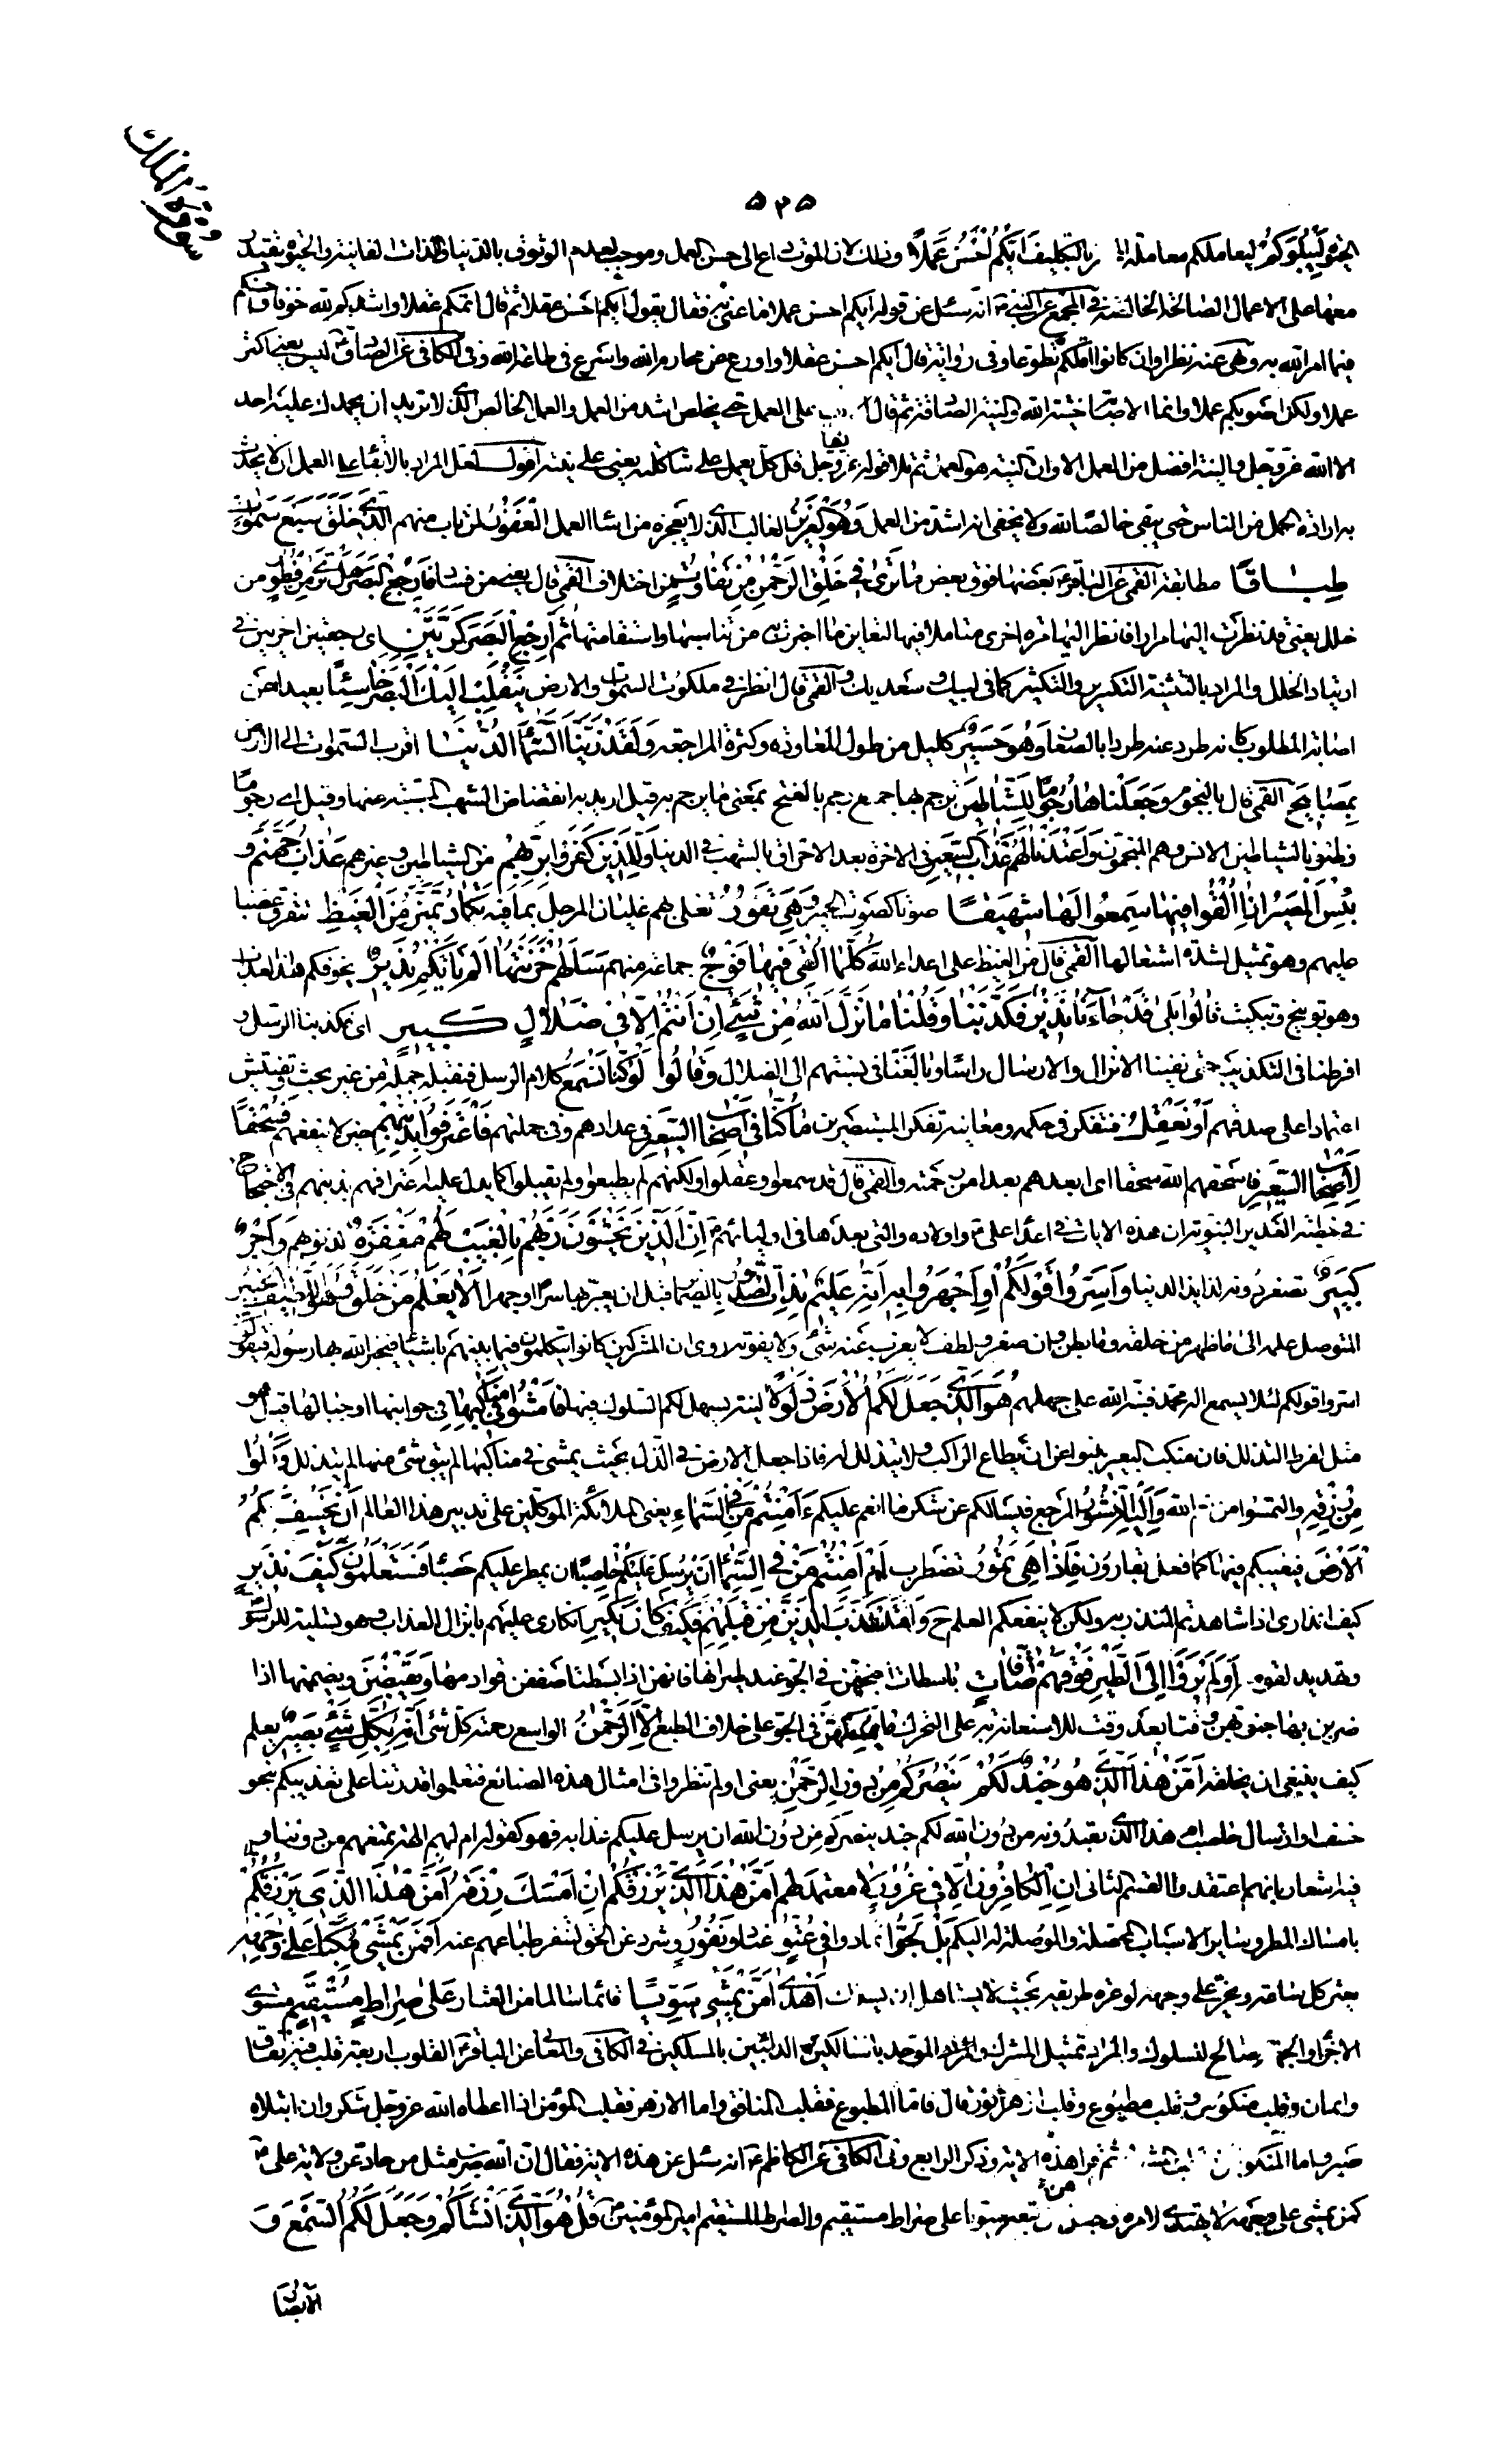 سورة الملك
٥٢٥
الحيوة لِيَبْلُوَكُمْ ليعاملكم معاملة بالتكليف أَيُّكُمْ أَحْسَنُ عَمَلًا وذلك لان الموت داع الى حسن العمل وموجب لعدم الوثوق بالدنيا ولذاتها الفانية والحيوة يقتدر
معها على الاعمال الصالحة الخالصة في المجمع عن النبي ص انه سئل عن قوله ايكم احسن عملا ما عنى به فقال يقول ايكم احسن عقلا ثم قال اتمكم عقلا واشدكم لله خوفا واحسنكم
فيما امر الله به ونهى عنه نظرا وان كانوا اقلكم تطوعا وفي رواية قال ايكم احسن عقلا واورع عن محارم الله واسرع في طاعة الله وفي الكافي عن الصادق ع ليس يعني اكثر
عملا ولكن اصوبكم عملا وانما الاصابة خشية الله والنية الصادقة ثم قال على العمل حتى يخلص اشد من العمل والعمل الخالص الذي لا تريد ان يحمدك عليه احد
الا الله عز وجل والنية افضل من العمل الا وان النية هو العمل ثم تلا قوله عز وجل قل كل يعمل على شاكلته يعني على نيته اقول لعل المراد بالابقاء على العمل ان لا يحدث
به ارادة الحمد من الناس حتى يبقى خالصا لله ولا يخفى انه اشد من العمل وَهُوَ الْعَزِيزُ الغالب الذي لا يعجزه من اساء العمل الْغَفُورُ لمن تاب منهم الَّذِي خَلَقَ سَبْعَ سَمٰوَاتٍ
طِبَاقًا مطابقة القمي عن الباقر ع بعضها فوق بعض مَا تَرَىٰ فِي خَلْقِ الرَّحْمٰنِ مِن تَفَاوُتٍ من اختلاف القمي قال يعني من فساد فَارْجِعِ الْبَصَرَ هَلْ تَرَىٰ مِن فُطُورٍ من
خلل يعني قد نظرت اليها مرارا فانظر اليها مرة اخرى متاملا فيها لتعاين ما اخبرت به من تناسبها واستقامتها ثُمَّ ارْجِعِ الْبَصَرَ كَرَّتَيْنِ اي رجعتين اخريين في
ارتياد الخلل والمراد بالتثنية التكرير والتكثير كما في لبيك وسعديك والقمي قال انظر في ملكوت السموات والارض يَنْقَلِبْ إِلَيْكَ الْبَصَرُ خَاسِئًا بعيدا عن
اصابة المطلوب كانه طرد عنه طردا بالصغار وَهُوَ حَسِيرٌ كليل من طول المعاودة وكثرة المراجعة وَلَقَدْ زَيَّنَّا السَّمَاءَ الدُّنْيَا اقرب السموات الى الارض
بِمَصَابِيحَ القمي قال بالنجوم وَجَعَلْنَاهَا رُجُومًا لِلشَّيَاطِينِ ترجم بها جمع رجم بالفتح بمعنى ما يرجم به قيل اريد به انقضاض الشهب المتسببة عنها وقيل اي رجوما
وظنونا لشياطين الانس وهم المنجمون وَأَعْتَدْنَا لَهُمْ عَذَابَ السَّعِيرِ في الاخرة بعد الاحراق بالشهب في الدنيا وَلِلَّذِينَ كَفَرُوا بِرَبِّهِمْ من الشياطين وغيرهم عَذَابُ جَهَنَّمَ وَ
بِئْسَ الْمَصِيرُ إِذَا أُلْقُوا فِيهَا سَمِعُوا لَهَا شَهِيقًا صوتا كصوت الحمير وَهِيَ تَفُورُ تغلي بهم غليان المرجل بما فيه تَكَادُ تَمَيَّزُ مِنَ الْغَيْظِ تتفرق غضبا
عليهم وهو تمثيل لشدة اشتعالها القمي قال من الغيظ على اعداء الله كُلَّمَا أُلْقِيَ فِيهَا فَوْجٌ جماعة منهم سَأَلَهُمْ خَزَنَتُهَا أَلَمْ يَأْتِكُمْ نَذِيرٌ يخوفكم هذا العذاب
وهو توبيخ وتبكيت قَالُوا بَلَىٰ قَدْ جَاءَنَا نَذِيرٌ فَكَذَّبْنَا وَقُلْنَا مَا نَزَّلَ اللَّهُ مِن شَيْءٍ إِنْ أَنتُمْ إِلَّا فِي ضَلَالٍ كَبِيرٍ اي فكذبنا الرسل و
افرطنا في التكذيب حتى نفينا الانزال والارسال راسا وبالغنا في نسبتهم الى الضلال وَقَالُوا لَوْ كُنَّا نَسْمَعُ كلام الرسل فنقبله جملة من غير بحث وتفتيش
اعتمادا على صدقهم أَوْ نَعْقِلُ فنتفكر في حكمه ومعانيه تفكر المستبصرين مَا كُنَّا فِي أَصْحَابِ السَّعِيرِ في عدادهم وفي جملتهم فَاعْتَرَفُوا بِذَنْبِهِمْ حين لا ينفعهم فَسُحْقًا
لِأَصْحَابِ السَّعِيرِ فاسحقهم الله سحقا اي ابعدهم بعدا من رحمته والقمي قال قد سمعوا وعقلوا ولكنهم لم يطيعوا ولم يقبلوا كما يدل عليه اعترافهم بذنبهم في الاحتجاج
في خطبة الغدير النبوية ان هذه الايات في اعداء علي ع واولاده والتي بعدها في اوليائهم ع إِنَّ الَّذِينَ يَخْشَوْنَ رَبَّهُمْ بِالْغَيْبِ لَهُمْ مَغْفِرَةٌ لذنوبهم وَأَجْرٌ
كَبِيرٌ تصغر دونه لذايذ الدنيا وَأَسِرُّوا قَوْلَكُمْ أَوِ اجْهَرُوا بِهِ إِنَّهُ عَلِيمٌ بِذَاتِ الصُّدُورِ بالضماير قبل ان يعبر بها سرا او جهرا أَلَا يَعْلَمُ مَنْ خَلَقَ وَهُوَ اللَّطِيفُ الْخَبِيرُ
المتوصل علمه الى ما ظهر من خلقه وما بطن وان صغر ولطف لا يعزب عنه شئ ولا يفوته روي ان المشركين كانوا يتكلمون فيما بينهم باشياء فيخبر الله بها رسوله فيقولون
اسروا قولكم لئلا يسمع اله محمد فنبه الله على جهلهم هُوَ الَّذِي جَعَلَ لَكُمُ الْأَرْضَ ذَلُولًا لينة يسهل لكم السلوك فيها فَامْشُوا فِي مَنَاكِبِهَا في جوانبها او جبالها قيل هو
مثل لفرط التذلل فان منكب البعير ينبو عن ان يطاه الراكب ولا يتذلل له فاذا جعل الارض في الذل بحيث يمشى في مناكبها لم يبق شئ منها لم يتذلل وَكُلُوا
مِن رِّزْقِهِ والتمسوا من نعم الله وَإِلَيْهِ النُّشُورُ المرجع فيسالكم عن شكر ما انعم عليكم ءَأَمِنْتُمْ مَنْ فِي السَّمَاءِ يعني الملائكة الموكلين على تدبير هذا العالم أَن يَخْسِفَ بِكُمُ
الْأَرْضَ فيغيبكم فيها كما فعل بقارون فَإِذَا هِيَ تَمُورُ تضطرب أَمْ أَمِنْتُمْ مَنْ فِي السَّمَاءِ أَن يُرْسِلَ عَلَيْكُمْ حَاصِبًا ان يمطر عليكم حصباء فَسَتَعْلَمُونَ كَيْفَ نَذِيرِ
كيف انذاري اذا شاهدتم المنذر به ولكن لا ينفعكم العلم ح وَلَقَدْ كَذَّبَ الَّذِينَ مِن قَبْلِهِمْ فَكَيْفَ كَانَ نَكِيرِ انكاري عليهم بانزال العذاب وهو تسلية للرسول
وتهديد لقومه أَوَلَمْ يَرَوْا إِلَى الطَّيْرِ فَوْقَهُمْ صَافَّاتٍ باسطات اجنحتهن في الجو عند طيرانها فانهن اذا بسطنها صففن قوادمها وَيَقْبِضْنَ ويضممنها اذا
ضربن بها جنوبهن وقتا بعد وقت للاستعانة به على التحرك مَا يُمْسِكُهُنَّ في الجو على خلاف الطبع إِلَّا الرَّحْمٰنُ الواسع رحمته كل شئ إِنَّهُ بِكُلِّ شَيْءٍ بَصِيرٌ يعلم
كيف ينبغي ان يخلقه أَمَّنْ هٰذَا الَّذِي هُوَ جُندٌ لَكُمْ يَنصُرُكُم مِن دُونِ الرَّحْمٰنِ يعني اولم تنظروا في امثال هذه الصنائع فتعلموا قدرتنا على تعذيبكم بنحو
خسف او ارسال حاصب ام هذا الذي تعبدونه من دون الله لكم جند ينصركم من دون الله ان يرسل عليكم عذابه فهو كقوله ام لهم الهة تمنعهم من دوننا و
فيه اشعار بانهم اعتقدوا القسم الثاني إِنِ الْكَافِرُونَ إِلَّا فِي غُرُورٍ لا معتمد لهم أَمَّنْ هٰذَا الَّذِي يَرْزُقُكُمْ إِنْ أَمْسَكَ رِزْقَهُ أَمَّنْ هٰذَا الَّذِي يَرْزُقُكُمْ
بامساك المطر وساير الاسباب المحصلة والموصلة له اليكم بَل لَّجُّوا تمادوا فِي عُتُوٍّ عناد وَنُفُورٍ وشرد عن الحق لتنفر طباعهم عنه أَفَمَن يَمْشِي مُكِبًّا عَلَىٰ وَجْهِهِ
يعثر كل ساعة ويخر على وجهه لوعرة طريقه بحيث لا يستاهل ان يسلك أَهْدَىٰ أَمَّن يَمْشِي سَوِيًّا قائما سالما من العثار عَلَىٰ صِرَاطٍ مُّسْتَقِيمٍ مستوي
الاجزاء والجهة صالح للسلوك والمراد تمثيل المشرك والموحد بالسالكين والدينين بالمسلكين في الكافي والمعاني عن الباقر ع القلوب اربعة قلب فيه نفاق
وايمان وقلب منكوس وقلب مطبوع وقلب ازهر انور قال فاما المطبوع فقلب المنافق واما الازهر فقلب المؤمن اذا اعطاه الله عز وجل شكر وان ابتلاه
صبر واما المنكوس فقلب المشرك ثم قرا هذه الاية وذكر الرابع وفي الكافي عن الكاظم ع انه سئل عن هذه الاية فقال ان الله ضرب مثل من حاد عن ولاية علي ع
كمن يمشي على وجهه لا يهتدي لامره وجعل من تبعه سويا على صراط مستقيم والصراط المستقيم امير المؤمنين ع قُلْ هُوَ الَّذِي أَنشَأَكُمْ وَجَعَلَ لَكُمُ السَّمْعَ وَ
الابصار